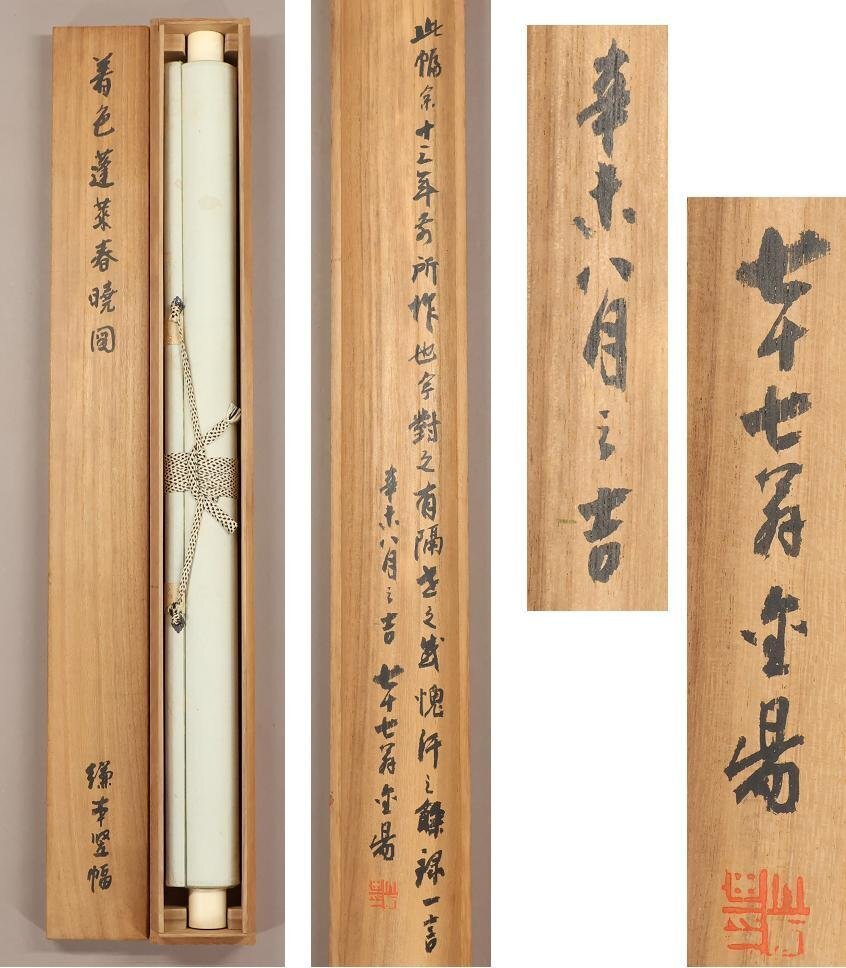 着色蓬莱春曉図
縑本竪幅
此幅余十三年前所作也今對之有隔世之感愧汗之餘録一言
辛未八月之吉
七十七翁
辛未八月之吉
七十七翁